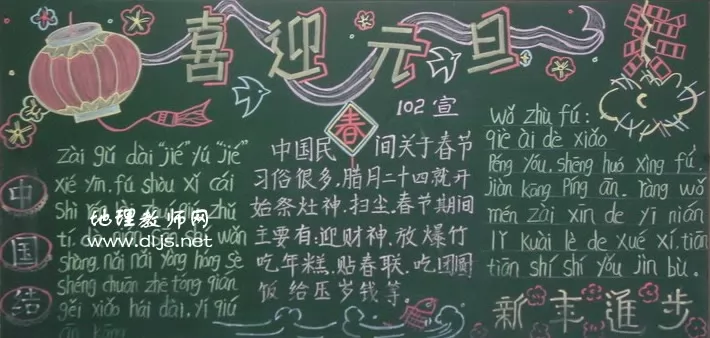 喜迎元旦
102宣
中国结
zài gǔ dài “jié” yǔ “jié”
xié yīn. fú shòu xǐ cái
shàng, nǎi nai yòng hóng sè
shéng chuān zhe tóng qián
gěi xiǎo hái dài, yǐ qiú
春
中国民间关于春节
习俗很多.腊月二十四就开
始祭灶神.扫尘.春节期间
主要有:迎财神,放爆竹
吃年糕.贴春联.吃团圆
饭给压岁钱等
wǒ zhù fú:
qiē ài de xiǎo
Péng yǒu. shēng huó xìng fú.
jiàn kāng Píng ān. ràng wǒ
mén zài xīn de yì nián
lǐ kuài lè de xué xí. tiān
tiān shí shí yǒu jìn bù.
新年進步
地理教师网
www.dljs.net